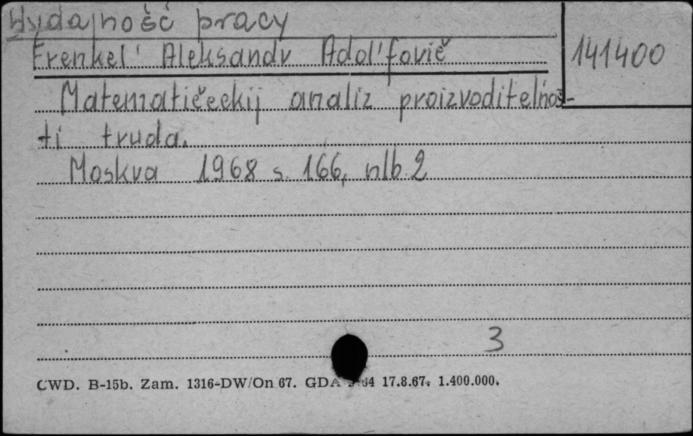 Wydajność pracy
141400
Frenkel' Aleksandr Adol'fovič
Matematičeskij analiz proizvoditelnos-
ti truda.
Moskva 1968 s. 166, nlb. 2
3
CWD. B-15b. Zam. 1316-DW/On 67. GDA 17.8.67. 1.400.000.